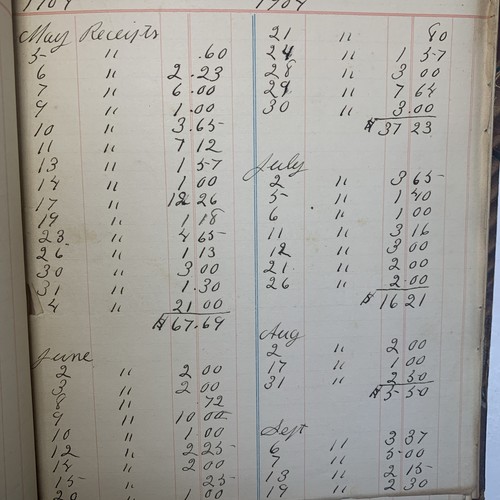 1904
May Receipts
5 " .60
6 " 2.23
7 " 6.00
9 " 1.00
10 " 3.65
11 " 7 12
13 " 1.57
14 " 1 00
17 " 12 26
19 " 1 18
23 " 4 65
26 " 1 13
30 " 3 00
31 " 1.30
4 " 21 00
$67.69
June
2 " 2 00
3 " 2 00
8 " .72
9 " 10 00
10 " 1 00
12 " 2 25
14 " 2 00
15 " 25
20 " 1 00
1904
21 " 80
24 " 1 57
28 " 3 00
29 " 7 64
30 " 3.00
$37 23
July
2 " 3 65
5 " 1 40
6 " 1 00
11 " 3 16
12 " 3 00
21 " 2 00
26 " 2.00
$16 21
Aug
2 " 2 00
17 " 1 00
31 " 2 50
$5 50
Sept
6 " 3 37
7 " 5.00
13 " 2 15
19 " 2 30